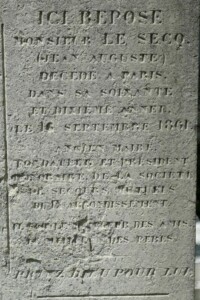 ICI REPOSE
MONSIEUR LE SECQ
(JEAN AUGUSTE)
DÉCÉDÉ A PARIS,
DANS SA SOIXANTE
ET DIXIÈME ANNÉE,
LE 16 SEPTEMBRE 1861.
ANCIEN MAIRE,
FONDATEUR ET PRÉSIDENT
DE LA SOCIÉTÉ
DE SECOURS MUTUELS
ARRONDISSEMENT
DES AMIS,
DES PÈRES.
PRIEZ DIEU POUR LUI.